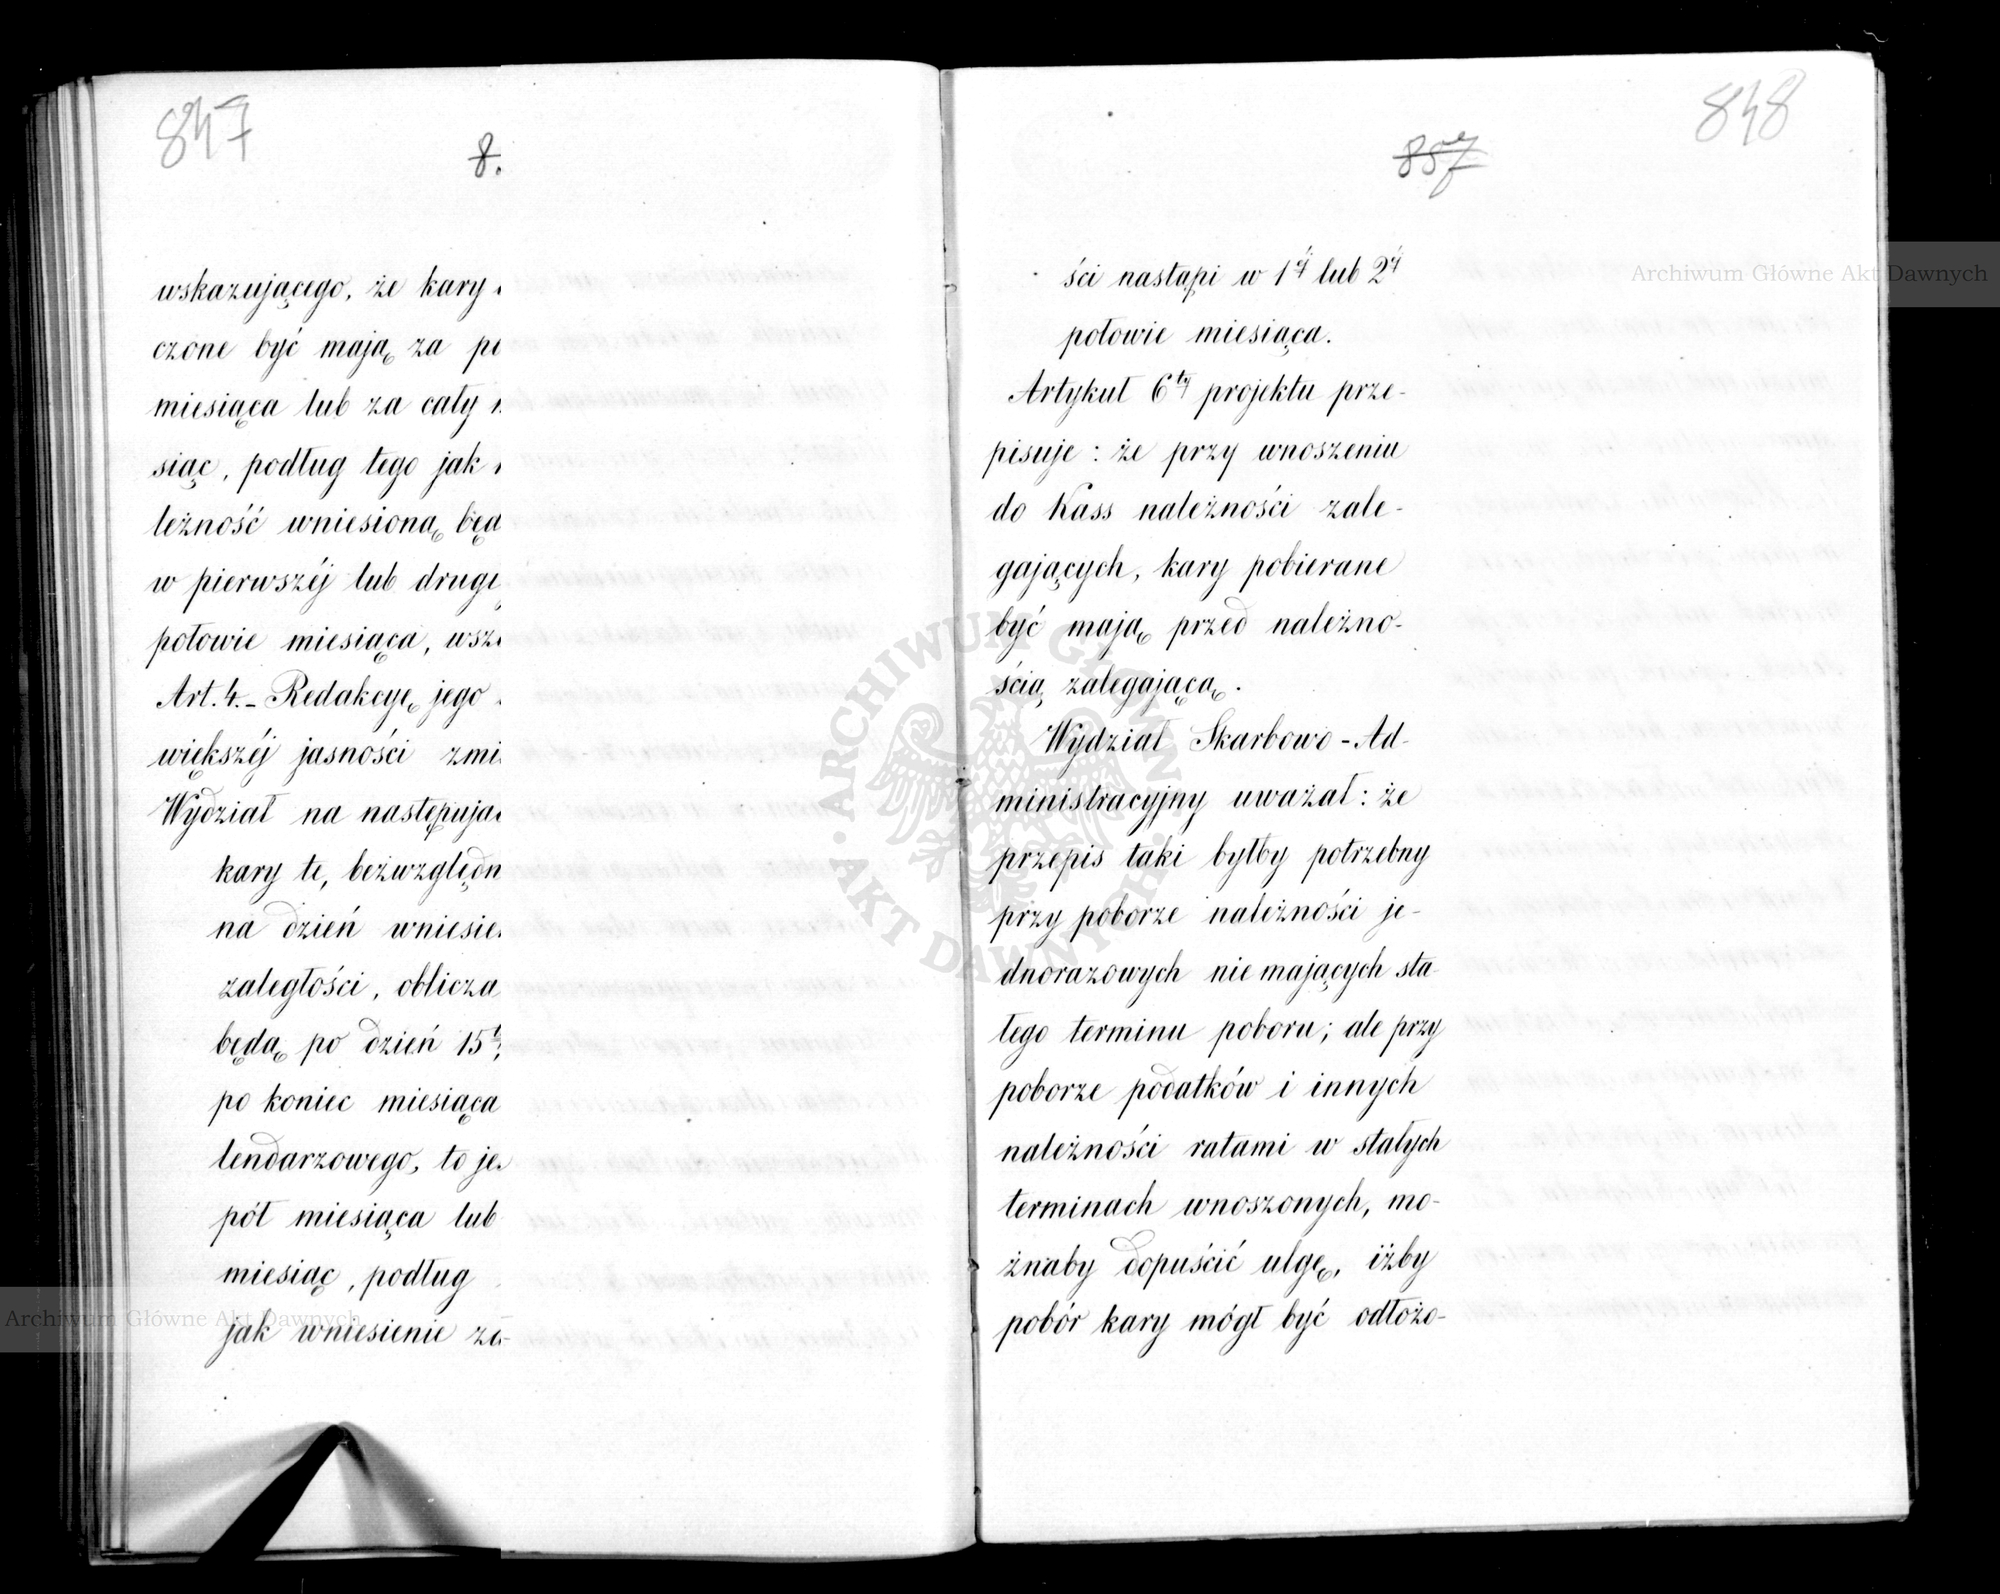 847
wskazującego, że kary
czone być mają za
miesiąca lub za cały
siąc, podług tego jak
leżność wniesioną
w pierwszéj lub
połowie miesiąca,
Art. 4. – Redakcyę jego
większéj jasności
Wydział na
kary te,
na dzień
zaległości,
będą po dzień 15
po koniec miesiąca
lendarzowego, to
pół miesiąca lub
miesiąc, podług
jak wniesienie
848
857
ści nastąpi w 1éj lub 2éj
połowie miesiąca.
Artykuł 6ty projektu prze-
pisuje: że przy wnoszeniu
do Kass należności zale-
gających, kary pobierane
być mają przed należno-
ścią zalegającą.
Wydział Skarbowo-Ad-
ministracyjny uważał: że
przepis taki byłby potrzebny
przy poborze należności je-
dnorazowych nie mających sta-
łego terminu poboru; ale przy
poborze podatków i innych
należności ratami w stałych
terminach wnoszonych, mo-
żnaby dopuścić ulgę, iżby
pobór kary mógł być odłożo-
Archiwum Główne Akt Dawnych
Archiwum Główne Akt Dawnych
ARCHIWUM GŁÓWNE AKT DAWNYCH